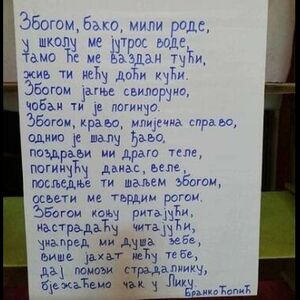 Збогом, бако, мили роде,
у школу ме јутрос воде,
тамо ће ме ваздан тући,
жив ти нећу доћи кући.
Збогом јагње свилоруно,
чобан ти је погинуо.
Збогом, краво, млијечна справо,
однио је шалу ђаво,
поздрави ми драго теле,
погинућу данас, веле,
посљедње ти шаљем збогом,
освети ме тврдим рогом.
Збогом коњу ритајући,
настрадаћу читајући,
унапред ми душа зебе,
више јахат нећу тебе,
дај помози страдалнику,
бјежаћемо чак у Лику.
Бранко Ћопић